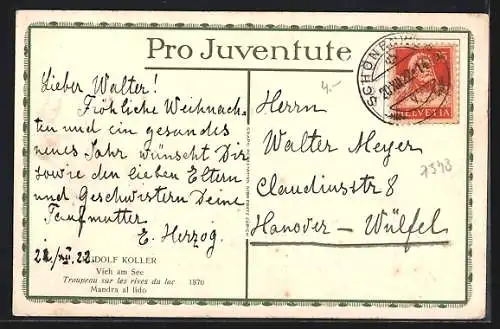 Pro Juventute
4.-
SCHÖNENW
20.XII.22.-14
HELVETIA
Lieber Walter!
Fröhliche Weihnach-
ten und ein gesundes
neues Jahr wünscht Dir
sowie den lieben Eltern
und Geschwistern Deine
Taufmutter
E. Herzog.
Herrn
Walter Meyer
Claudiusstr 8
Hanover - Wülfel
7543
RUDOLF KOLLER
Vieh am See
Troupeau sur les rives du lac 1870
Mandra al lido